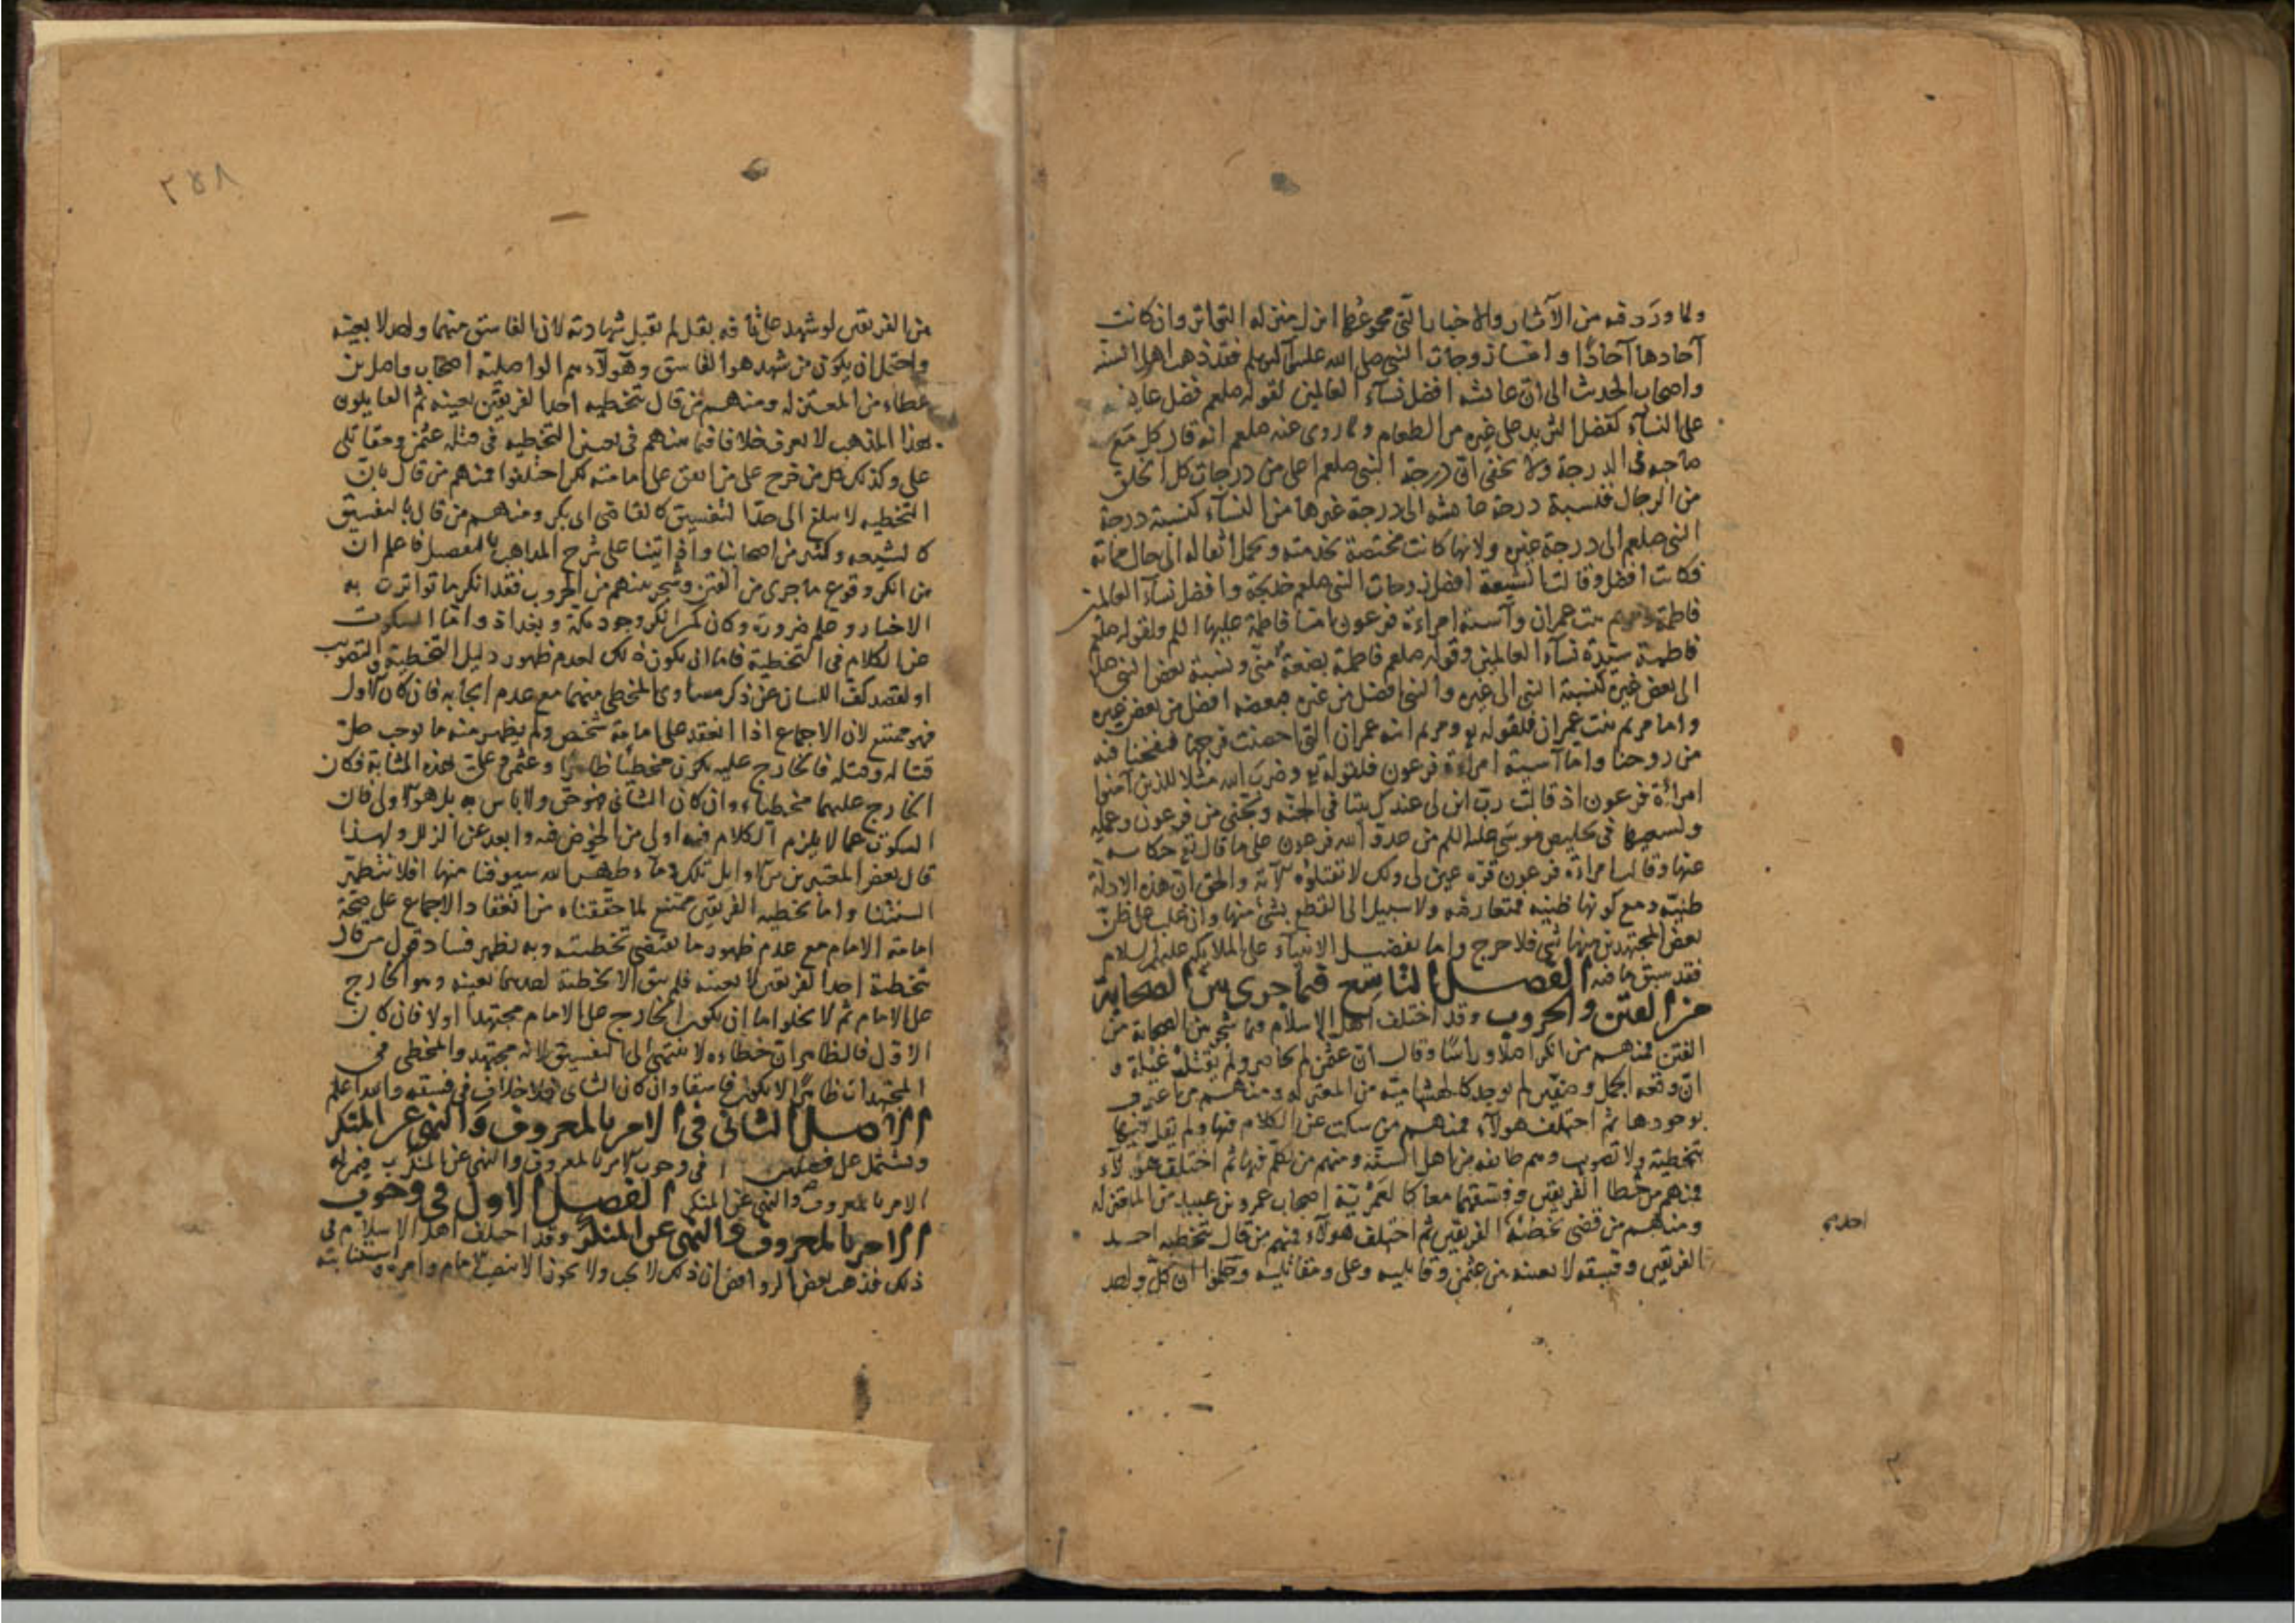 ولما ورد فيه من الآثار والاخبار التي مجموعها انزل منزله التواتر وان كانت
آحادها آحادًا واما زوجات النبي صلى الله عليه وآله وسلم فقد ذهب اهل السنه
واصحاب الحديث الى ان عايشه افضل نسآء العالمين لقوله صلعم فضل عايشه
على النسآء كفضل الثريد على غيره من الطعام ولما روى عنه صلعم انه قال كل مع
صاحبه في الدرجة ولا يخفى ان درجة النبي صلعم اعلى من درجات كل الخلق
من الرجال فنسبة درجة عائشه الى درجة غيرها من النسآء كنسبة درجة
النبي صلعم الى درجة غيره ولانها كانت مختصة بخدمته وتحمل اثقاله الى حال مماته
فكانت افضل وقالت الشيعة افضل زوجات النبي صلعم خديجة وافضل نسآء العالمين
فاطمة ومريم بنت عمران وآسية امراءة فرعون اما فاطمة عليها السلم فلقوله صلعم
فاطمة سيدة نسآء العالمين وقوله صلعم فاطمة بضعة منى ونسبة بعض النبي صلعم
الى بعض غيره كنسبة النبي الى غيره والنبي افضل من غيره فبعضه افضل من بعض غيره
واما مريم بنت عمران فلقوله تع ومريم ابنه عمران التي احصنت فرجها فنفخنا فيه
من روحنا واما آسية امراءة فرعون فلقوله تع وضرب الله مثلا للذين آمنوا
امرأة فرعون اذ قالت رب ابن لى عندك بيتا في الجنه ونجني من فرعون وعمله
ولسعيها في تخليص موسى عليه السلم من عدو الله فرعون على ما قال تع حكاية
عنها وقالت امراءة فرعون قرة عين لى ولك لا تقتلوه الآية والحق ان هذه الادلة
ظنية ومع كونها ظنيه فمتعارضه ولا سبيل الى القطع بشئ منها وان غلب على ظن
بعض المجتهدين منها شئ فلا حرج واما تفضيل الانبيآء على الملايكه عليهم السلام
فقد سبق ما فيه الفصل التاسع فيما جرى بين الصحابة
من الفتن والحروب وقد اختلف اهل الاسلام فيما شجر بين الصحابة من
الفتن فمنهم من انكر اصلا وراسًا وقال ان عثمن لم يحاصر ولم يقتل غيلة و
ان وقعه الجمل وصفين لم يوجد كالهشامية من المعتزله ومنهم من اعترف
بوجودها ثم اختلف هولآء فمنهم من سكت عن الكلام فيها ولم يقل فيهما
بتخطية ولا تصويب وهم طايفه من اهل السنة ومنهم من تكلم فيها ثم اختلف هولآء
فمنهم من خطا الفريقين وفسقهما معا كالعمرية اصحاب عمرو بن عبيد من المعتزله
ومنهم من قضى بتخطئة الفريقين ثم اختلف هولآء فمنهم من قال بتخطيه احد
الفريقين وفسقه لا بعينه من عثمن وقاتليه وعلى ومقاتليه وحكموا ان كل واحد
من الفريقين لو شهد على باقه بقل لم تقبل شهادته لان الفاسق منهما واحد لا بعينه
واحتمل ان يكون من شهد هو الفاسق وهولآء هم الواصلية اصحاب واصل بن
عطاء من المعتزله ومنهم من قال بتخطيه احد الفريقين بعينه ثم القايلون
بهذا المذهب لا نعرف خلافا فيما بينهم في تعين التخطيه في قتله عثمن ومقاتلى
على وكذلك كل من خرج على من اتفق على امامته لكن اختلفوا فمنهم من قال بان
التخطيه لا تبلغ الى حد التفسيق كالقاضى ابى بكر ومنهم من قال بالتفسيق
كالشيعه وكثير من اصحابنا واذ اتينا على شرح المذاهب بالتفصيل فاعلم ان
من انكر وقوع ما جرى من الفتن وشجر بينهم من الحروب فقد انكر ما تواترت به
الاخبار وعلم ضرورة وكان كمن انكر وجود مكة وبغداذ واما السكوت
عن الكلام في التخطية فاما ان يكون ذلك لعدم ظهور دليل التخطية والتصويب
او لقصد كف اللسان عن ذكر مساوى المخطى منهما مع عدم ايجابه فان كان الاول
فهو ممتنع لان الاجماع اذا انعقد على امامة شخص ولم يظهر منه ما يوجب حل
قتاله وقتله فالخارج عليه يكون مخطيًا ظاهرًا وعثمن وعلى بهذه المثابة فكان
الخارج عليهما مخطياء وان كان الثانى فهو حق ولا باس به بل هو اولى فان
السكوت عما لا يلزم الكلام فيه اولى من الخوض فيه وابعد عن الزلل ولهذا
قال بعض المعتبرين من الاوايل تلك دمآء طهر الله سيوفنا منها افلا نطهر
السنتنا واما تخطيه الفريقين فممتنع لما حققناه من انعقاد الاجماع على صحة
امامة الامام مع عدم ظهور ما يقتضى تخطيته وبه يظهر فساد قول من قال
بتخطئة احد الفريقين لا بعينه فلم يبق الا تخطئة احدهما بعينه وهو الخارج
على الامام ثم لا يخلوا اما ان يكون الخارج على الامام مجتهداً او لا فان كان
الاول فالظاهر ان خطاءه لا ينتهى الى التفسيق لانه مجتهد والمخطى في
المجتهدات ظاهرًا لا يكون فاسقا وان كان الثانى فلا خلاف في فسقه والله اعلم
الاصل الثانى في الامر بالمعروف والنهي عن المنكر
ويشتمل على فصلين ا في وجوب الامر بالمعروف والنهى عن المنكر ب فيمن له
الامر بالمعروف والنهي عن المنكر الفصل الاول في وجوب
الامر بالمعروف والنهي عن المنكر وقد اختلف اهل الاسلام في
ذلك فذهب بعض الروافض ان ذلك لا يجب ولا يجوز الا بنصب الامام وامره واستنابته
احدى
٣٥٨